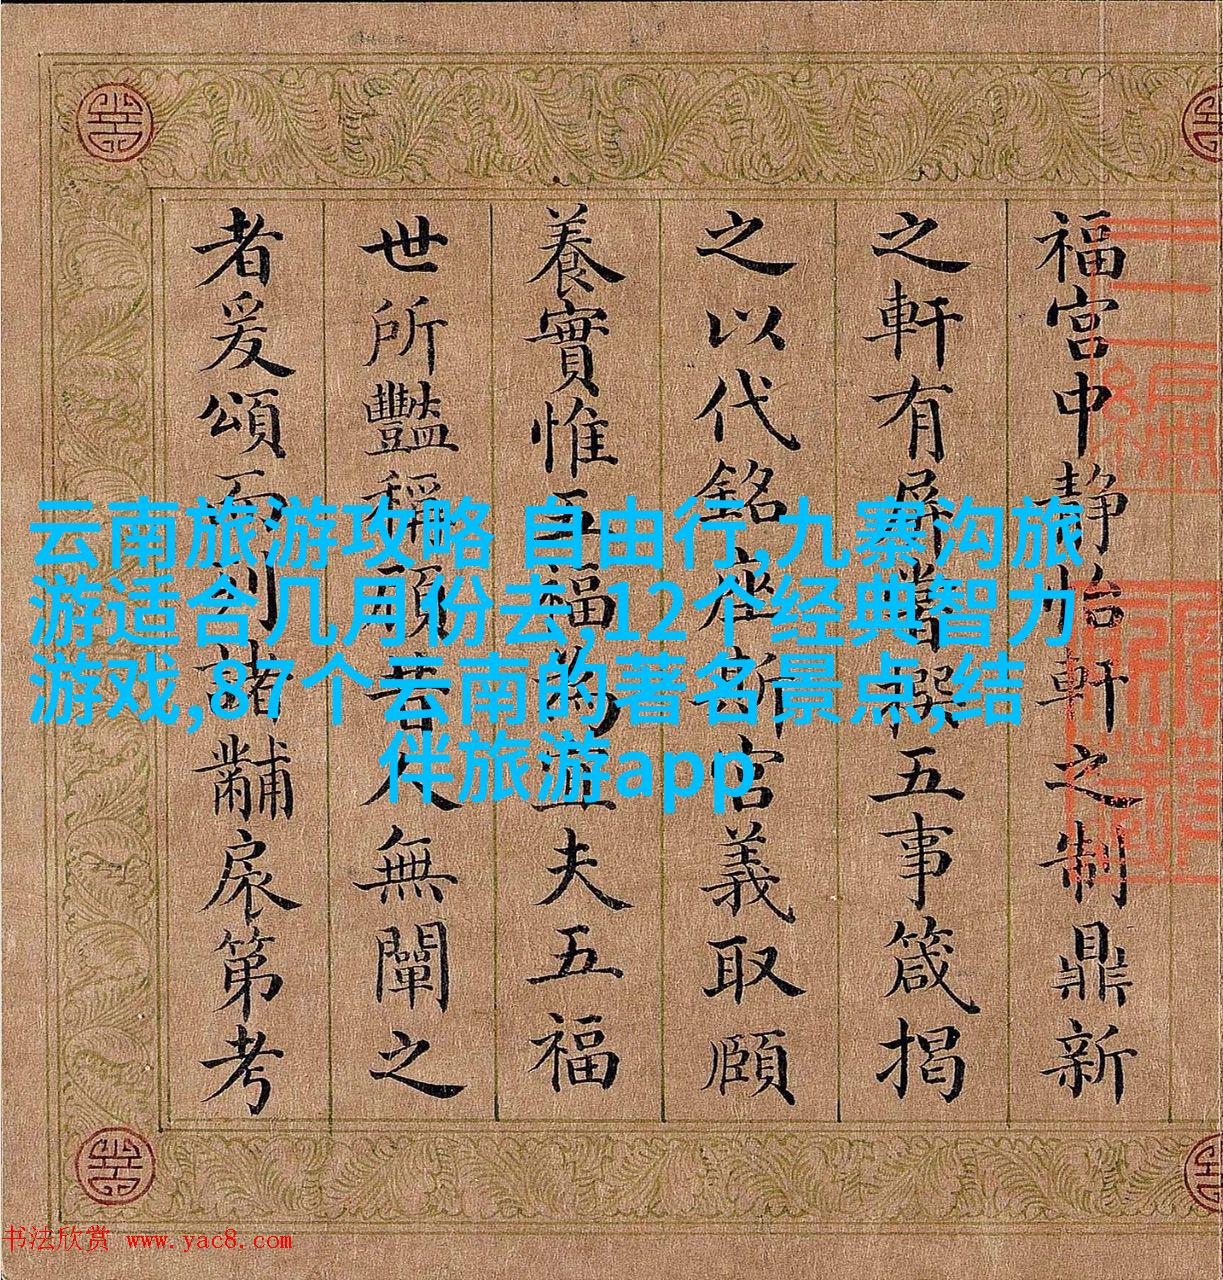 福宮中靜怡軒之制鼎新
之軒有屏嘗撰五事箴揭
之以代銘座斯宮義取頤
養實惟五福為夫五福
世所豔稱顧昔人無闡之
者爰頌而列諸黼扆第考
云南旅游攻略 自由行,九寨沟旅
游适合几月份去,12个经典智力
游戏,87个云南的著名景点,结
伴旅游app
书法欣赏 www.yac8.com